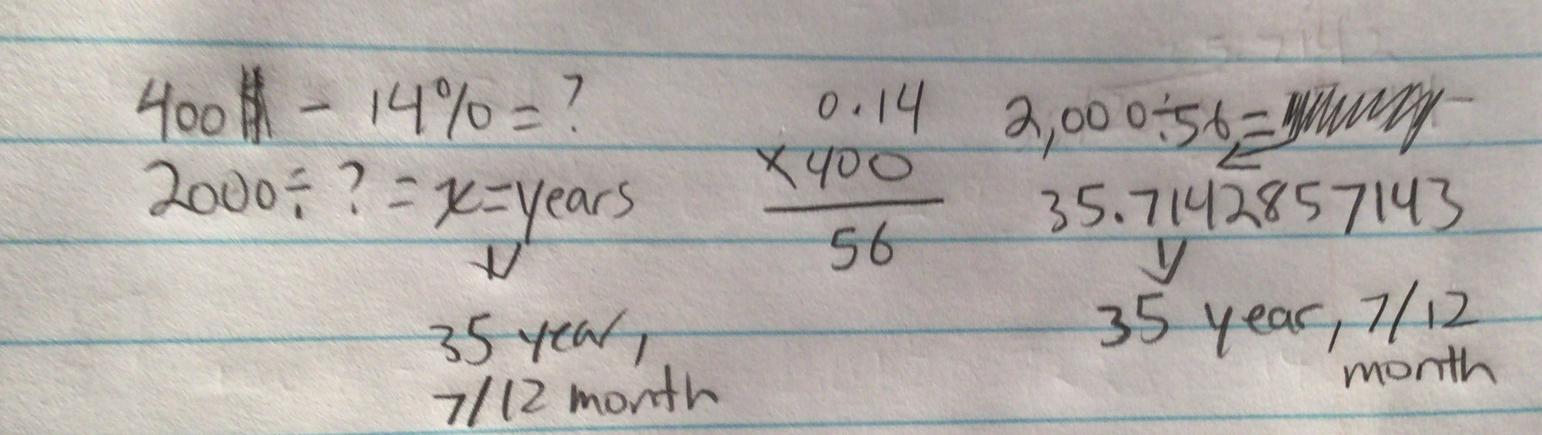 400 - 14% = ?
2000 ÷ ? = x = years
35 year,
7/12 month
0.14
×400
56
2,000÷56=
35.7142857143
35 year, 7/12
month